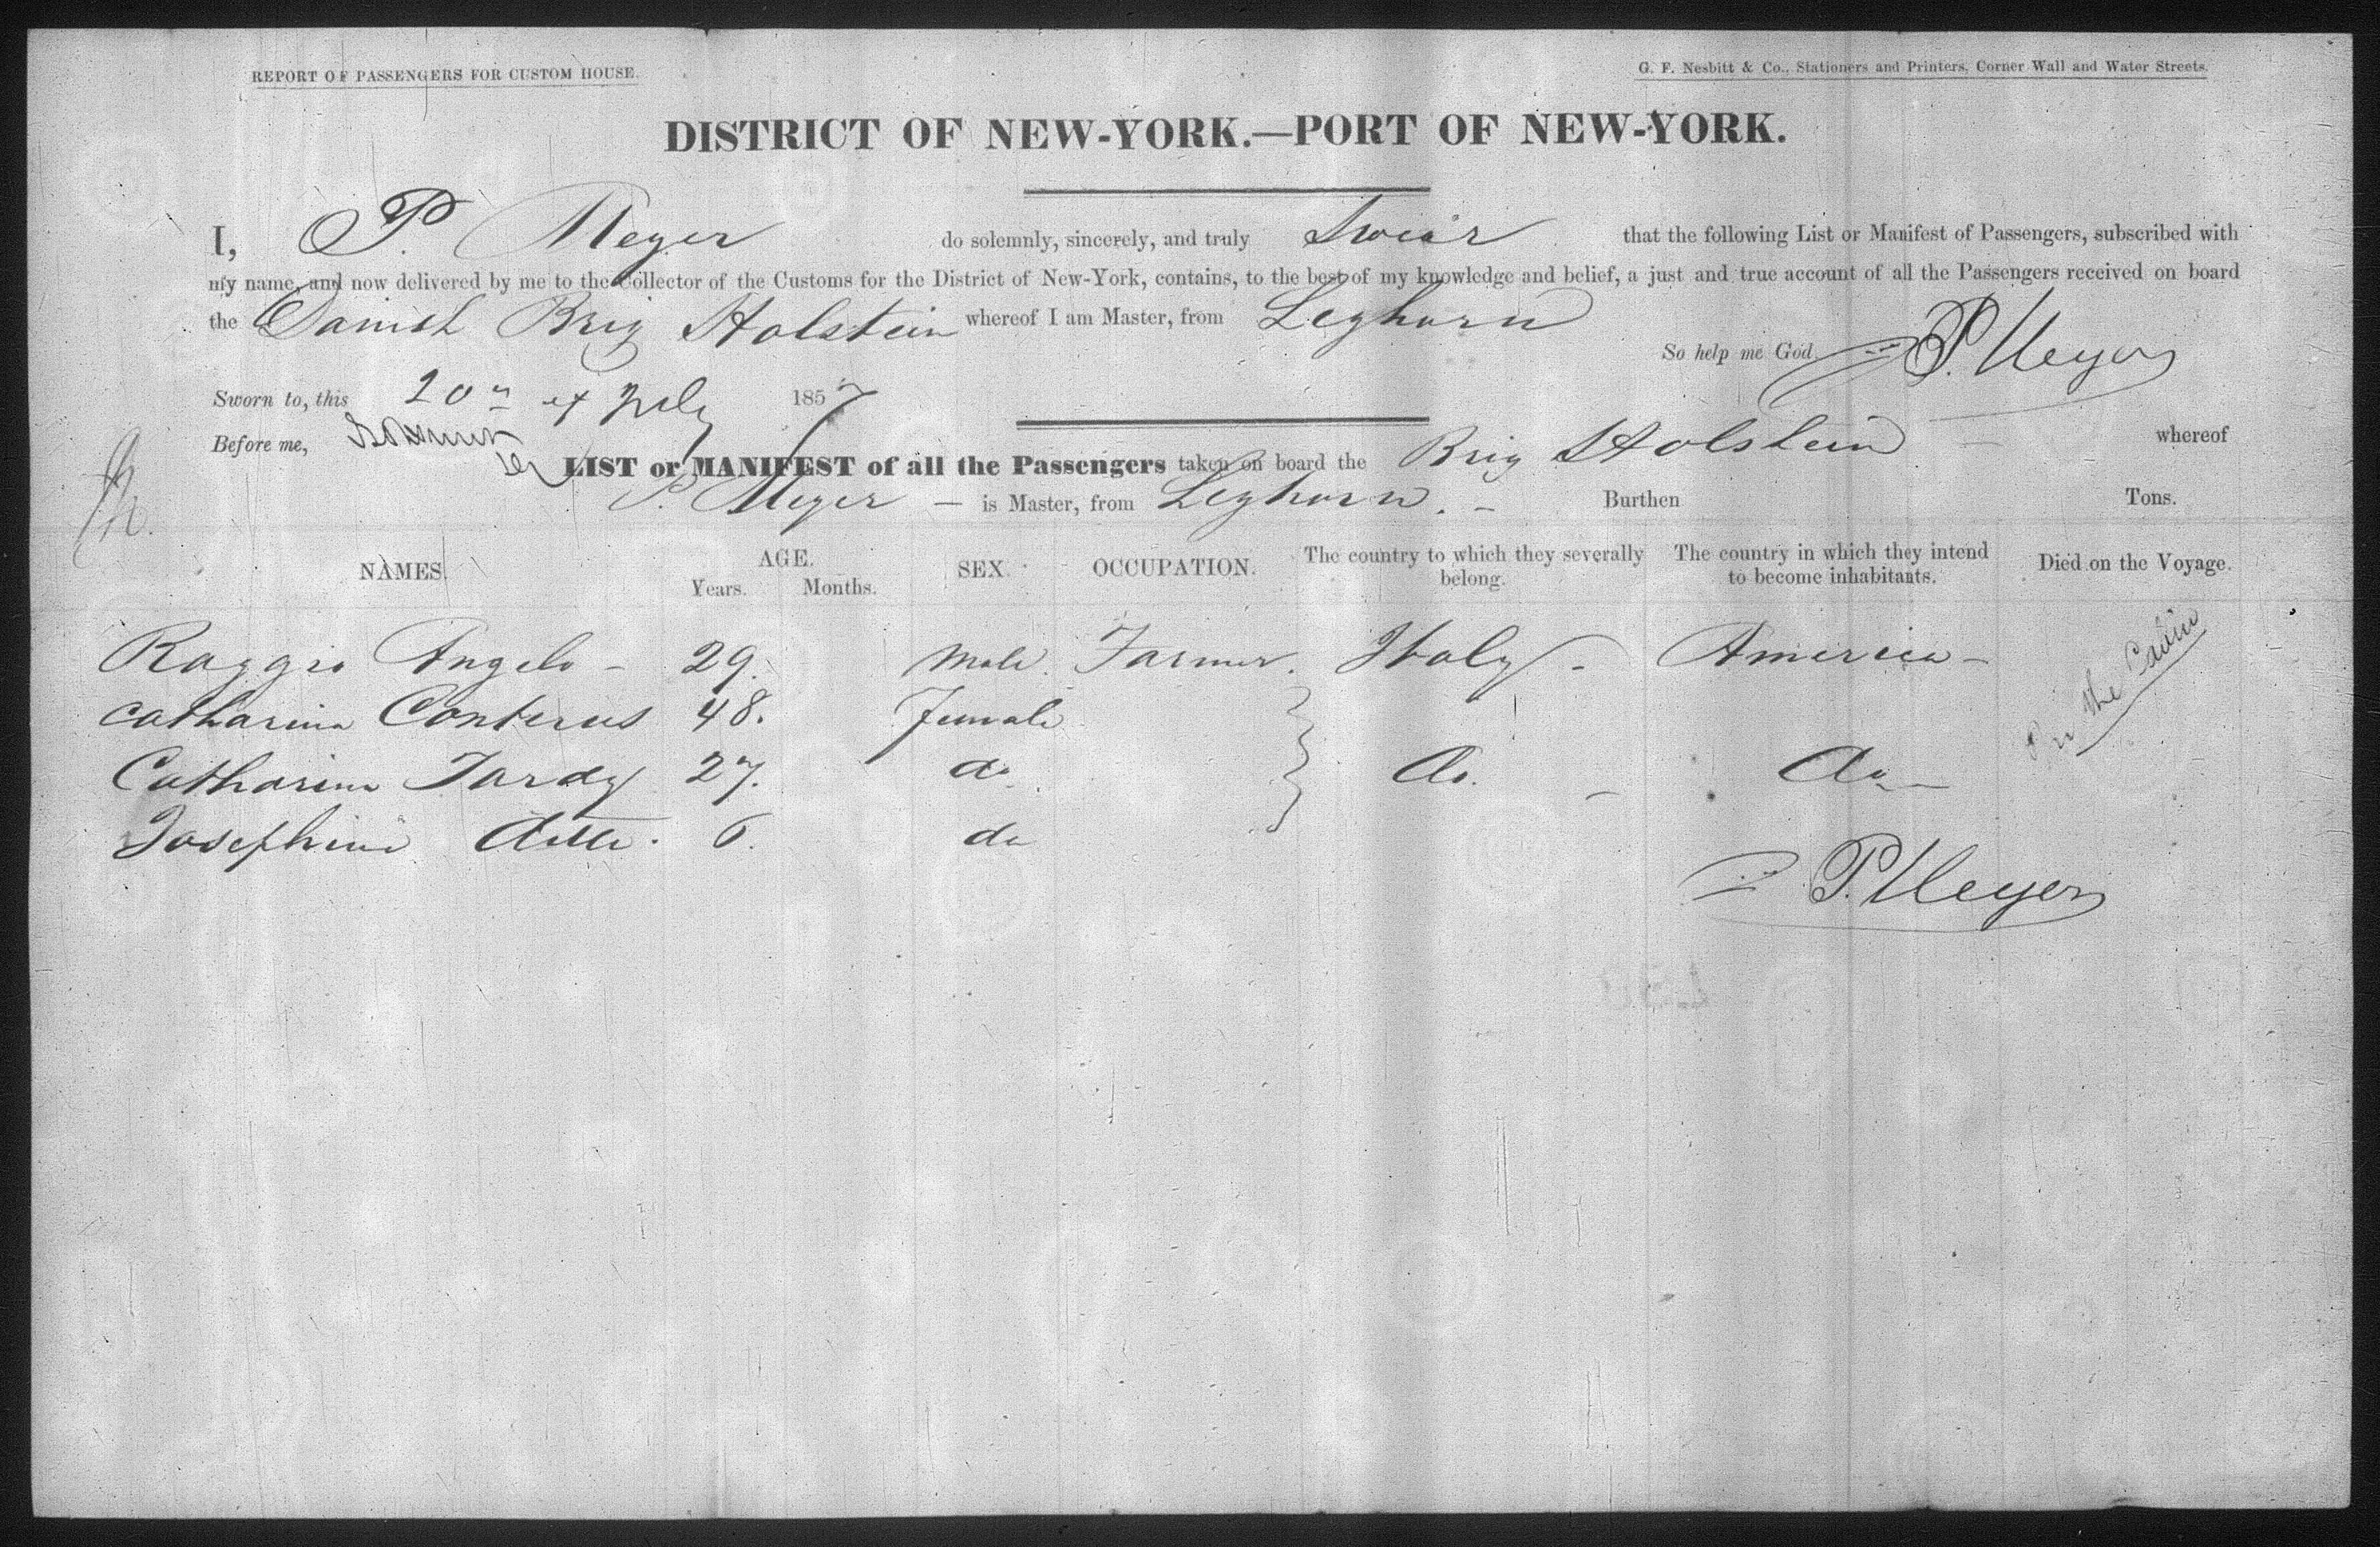 REPORT OF PASSENGERS FOR CUSTOM HOUSE.
G. F. Nesbitt & Co., Stationers and Printers, Corner Wall and Water Streets.
DISTRICT OF NEW-YORK.—PORT OF NEW-YORK.
I, P. Meyer do solemnly, sincerely, and truly Swear that the following List or Manifest of Passengers, subscribed with
my name, and now delivered by me to the Collector of the Customs for the District of New-York, contains, to the best of my knowledge and belief, a just and true account of all the Passengers received on board
the Danish Brig Holstein whereof I am Master, from Leghorn
So help me God P. Meyer
Sworn to, this 20" of July 1857
Before me,
LIST or MANIFEST of all the Passengers taken on board the Brig Holstein — whereof
P. Meyer — is Master, from Leghorn. — Burthen Tons.
NAMES. AGE. Years. Months. SEX. OCCUPATION. The country to which they severally belong. The country in which they intend to become inhabitants. Died on the Voyage.
Raggio Angelo — 29. Male. Farmer. Italy — America —
Catharina Conterus 48. Female
Catharina Tardy 27. do do. — do —
Josephine ditto. 6. do
In the Cabin
P. Meyer